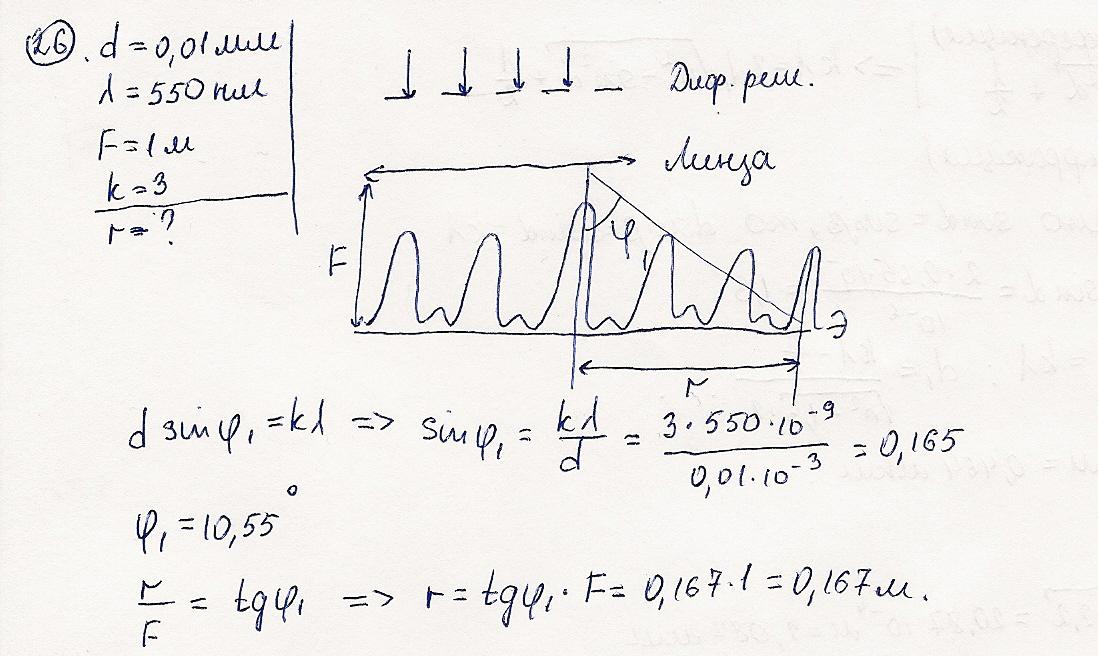 26. d = 0,01 мм
λ = 550 нм
F = 1 м
k = 3
r = ?
Диф. реш.
Линза
F
φ₁
Э
r
d sinφ₁ = kλ => sinφ₁ = kλ/d = 3·550·10⁻⁹/0,01·10⁻³ = 0,165
φ₁ = 10,55°
r/F = tgφ₁ => r = tgφ₁ · F = 0,167·1 = 0,167 м.